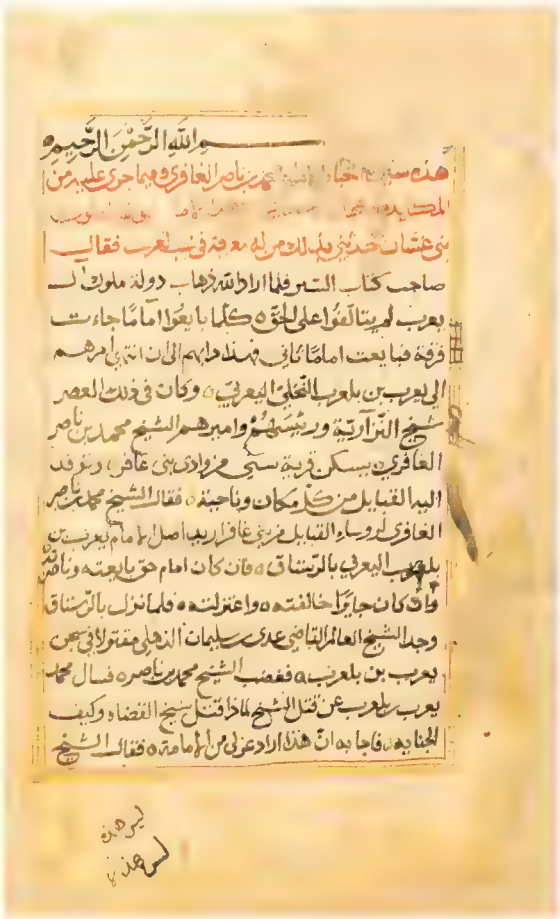 بسم الله الرحمن الرحيم
هذه سيرة محمد بن ناصر الغافري وفيما جرى عليه من
المكايده
بني غسان حدثني بذلك من له معرفة في نسب العرب فقال
صاحب كتاب السير فلما اراد الله ذهاب دولة ملوك آل
يعرب لم يتالفوا على الحق كلما بايعوا اماما جاءت
فرقة فبايعت اماما ثاني فهذا دابهم الى ان انتهى امرهم
الى يعرب بن بلعرب النخلي اليعربي وكان في ذلك العصر
شيخ النزآرية ورئيسهم واميرهم الشيخ محمد بن ناصر
الغافري يسكن قرية سني من وادي بني غافر وتوفد
اليه القبايل من كل مكان وناحية فقال الشيخ محمد بن ناصر
الغافري لروساء القبايل من بني غافر اريد اصل الامام يعرب بن
بلعرب اليعربي بالرستاق فان كان امام حق بايعته وناصرته
وان كان جايرا خالفته واعتزلته فلما نزل بالرستاق
وجد الشيخ العالم القاضي عدي بن سليمان الذهلي مقتولا في سجن
يعرب بن بلعرب فغضب الشيخ محمد بن ناصر فسال محمد
يعرب بن بلعرب عن قتل الشيخ لماذا قتل شيخ القضاه وكيف
الجنايه فاجابه ان هذا اراد عزلي من الامامة فقال الشيخ
ليس هذه
ليس هذه